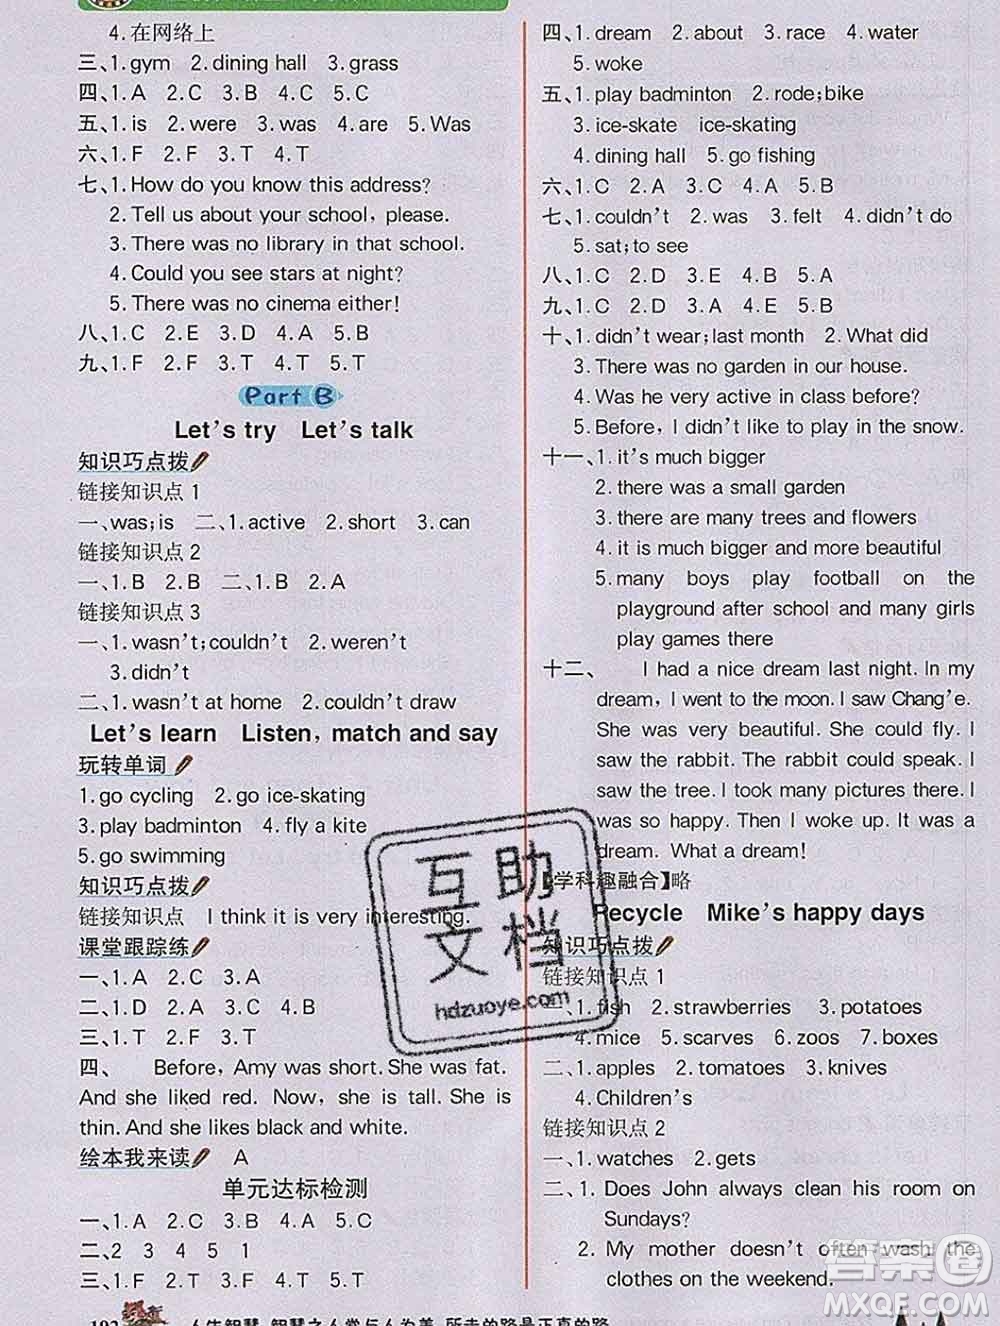 4.在网络上
三、1.gym 2.dining hall 3.grass
四、1.A 2.C 3.B 4.A 5.C
五、1.is 2.were 3.was 4.are 5.Was
六、1.F 2.F 3.T 4.T
七、1.How do you know this address?
2.Tell us about your school, please.
3.There was no library in that school.
4.Could you see stars at night?
5.There was no cinema either!
八、1.C 2.E 3.D 4.A 5.B
九、1.F 2.F 3.T 4.T 5.T
Part B
Let's try Let's talk
知识巧点拨
链接知识点 1
一、was;is 二、1.active 2.short 3.can
链接知识点 2
一、1.B 2.B 二、1.B 2.A
链接知识点 3
一、1.wasn't;couldn't 2.weren't
3.didn't
二、1.wasn't at home 2.couldn't draw
Let's learn Listen, match and say
玩转单词
1.go cycling 2.go ice-skating
3.play badminton 4.fly a kite
5.go swimming
知识巧点拨
链接知识点 I think it is very interesting.
课堂跟踪练
一、1.A 2.C 3.A
二、1.D 2.A 3.C 4.B
三、1.T 2.F 3.T
四、 Before, Amy was short. She was fat.
And she liked red. Now, she is tall. She is
thin. And she likes black and white.
绘本我来读 A
单元达标检测
一、1.A 2.C 3.B 4.A 5.C
二、2 3 4 5 1
三、1.F 2.T 3.F 4.T 5.T
192 人生智慧
四、1.dream 2.about 3.race 4.water
5.woke
五、1.play badminton 2.rode;bike
3.ice-skate ice-skating
4.dining hall 5.go fishing
六、1.C 2.A 3.C 4.A 5.B
七、1.couldn't 2.was 3.felt 4.didn't do
5.sat;to see
八、1.C 2.D 3.E 4.B 5.A
九、1.C 2.D 3.A 4.E 5.B
十、1.didn't wear;last month 2.What did
3.There was no garden in our house.
4.Was he very active in class before?
5.Before, I didn't like to play in the snow.
十一、1.it's much bigger
2.there was a small garden
3.there are many trees and flowers
4.it is much bigger and more beautiful
5.many boys play football on the
playground after school and many girls
play games there
十二、 I had a nice dream last night. In my
dream, I went to the moon. I saw Chang'e.
She was very beautiful. She could fly. I
saw the rabbit. The rabbit could speak. I
saw the tree. I took many pictures there. I
was so happy. Then I woke up. It was a
dream. What a dream!
【学科趣融合】略
Recycle Mike's happy days
知识巧点拨
链接知识点 1
一、1.fish 2.strawberries 3.potatoes
4.mice 5.scarves 6.zoos 7.boxes
二、1.apples 2.tomatoes 3.knives
4.Children's
链接知识点 2
一、1.watches 2.gets
二、1. Does John always clean his room on
Sundays?
2. My mother doesn't often wash the
clothes on the weekend.
互助
文档
hdzuoye.com
答案圈
MXQE.COM